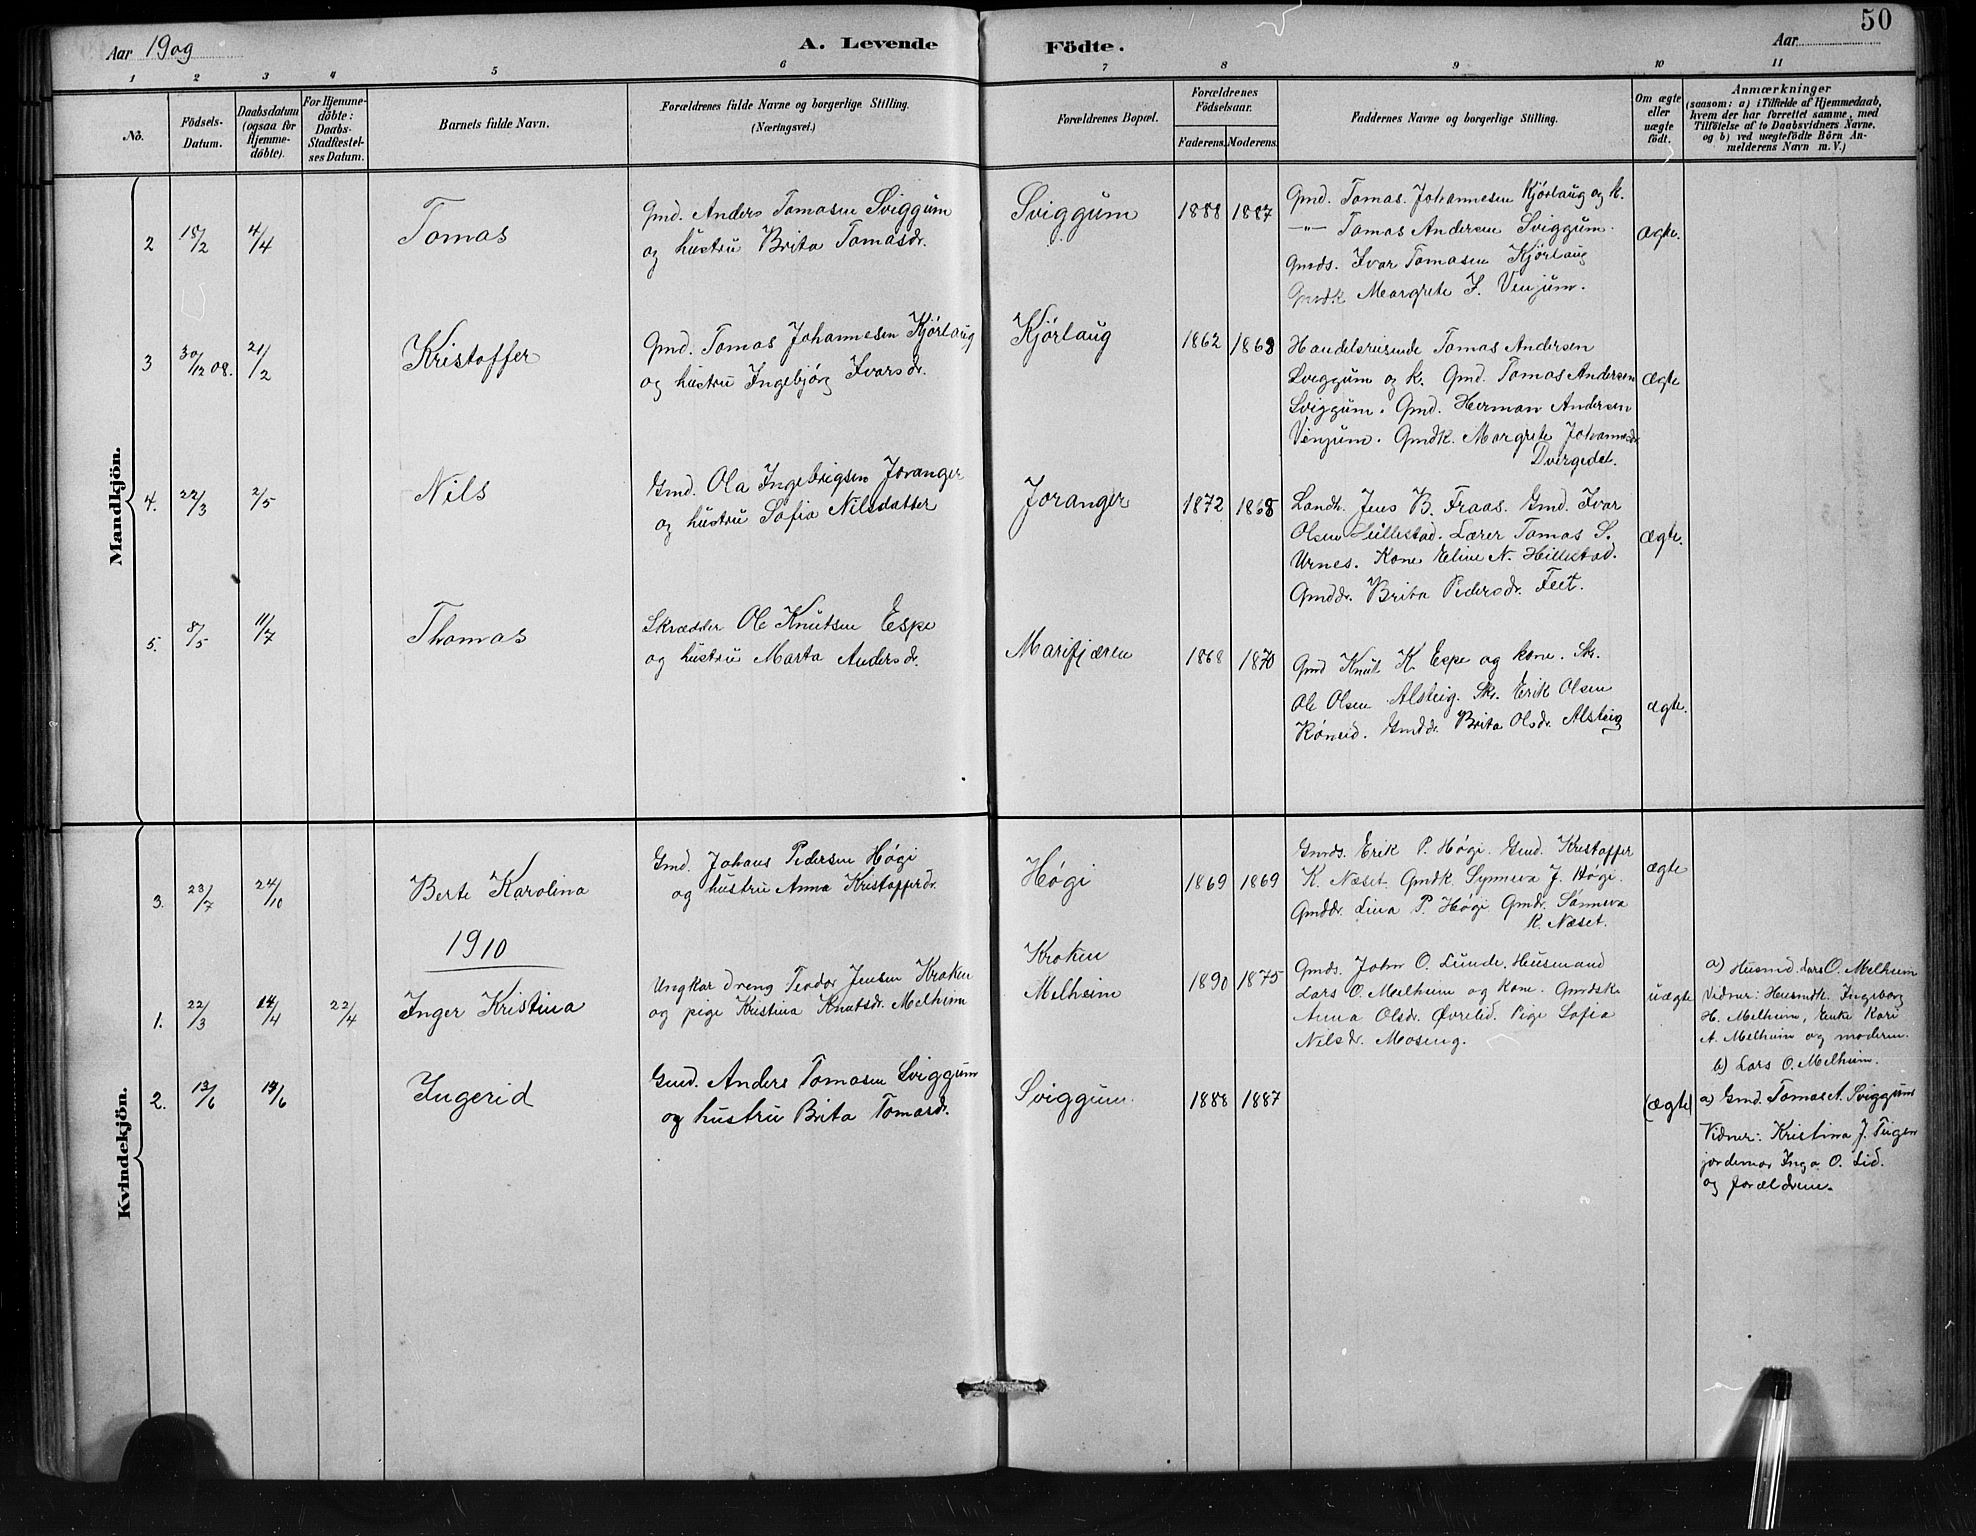 50
Aar 1909
A. Levende Födte.
Aar
1 2 3 4 5 6 7 8 9 10 11
No.
Födsels-Datum.
Daabsdatum (ogsaa for Hjemme-döbte).
For Hjemme-döbte: Daabs-Stadfestel-ses Datum.
Barnets fulde Navn.
Forældrenes fulde Navne og borgerlige Stilling.
(Næringsvei.)
Forældrenes Bopæl.
Forældrenes Födselsaar.
Faderens. Moderens.
Faddernes Navne og borgerlige Stilling.
Om ægte eller uægte födt.
Anmærkninger
(saasom: a) i Tilfælde af Hjemmedaab,
hvem der har forrettet samme, med
Tilföielse af to Daabsvidners Navne,
og b) ved uægtefödte Börn An-
melderens Navn m. V.)
Mandkjön.
2 15/2 4/4 Tomas
Gmd. Anders Tomasen Sviggum
og hustru Brita Tomasdr.
Sviggum 1888 1887
Gmd. Tomas Johannesen Kjørlaug og k.
—"— Tomas Andersen Sviggum.
Gmds. Ivar Tomasen Kjørlaug
Gmdk Margrete J. Venjum.
ægte.
3 30/12 08. 21/2 Kristoffer
Gmd. Tomas Johannesen Kjørlaug
og hustru Ingebjørg Ivarsdr.
Kjørlaug 1862 1868
Handelsreisende Tomas Andersen
Sviggum og k. Gmd. Tomas Andersen
Sviggum. Gmd. Herman Andersen
Venjum. Gmdk. Margrete Johannesdr
Dvergedal.
ægte
4. 22/3 2/5 Nils
Gmd. Ola Ingebrigsen Joranger
og hustru Sofia Nilsdatter
Joranger 1872 1868
Landh. Jens B. Fraas. Gmd. Ivar
Olsen Lillestad. Lærer Tomas S.
Urnes. Kone Eline N. Hillestad.
Gmddr. Brita Pedersdr. Feet.
ægte.
5. 8/5 11/7 Thomas
Skrædder Ole Knutsen Espe
og hustru Marta Andersdr.
Marifjæren 1868 1870
Gmd Knut K. Espe og kone. Skr.
Ole Olsen Alsteig. Skr. Erik Olsen
Røneid. Gmddr. Brita Olsdr. Alsteig
ægte.
Kvindekjön.
3. 23/7 24/10 Berte Karolina
Gmd. Johans Pedersen Høgi
og hustru Anna Kristofferdr.
Høgi 1869 1869
Gmds. Erik P. Høgi. Gmd. Kristoffer
K. Næset. Gmdk. Synneva J. Høgi.
Gmddr. Lina P. Høgi Gmdr. Sønneva
K. Næset.
ægte
1910
1. 22/3 14/4 22/4 Inger Kristina
Ungkar dreng Teodor Jensen Kroken
og pige Kristina Knutsdr. Melheim
Kroken
Melheim 1890 1875
Gmds. John O. Lunde. Husmand
Lars O. Melheim og kone. Gmdsk
Anna Olsdr. Øvrelid. Pige Sofia
Nilsdr. Moseng.
uægte
a) Husmd. Lars O. Melheim
Vidner: Husmdk. Ingeborg
H. Melheim, Enke Kari
A. Melheim og moderen.
b) Lars O. Melheim.
2. 13/6 17/6 Ingerid
Gmd. Anders Tomasen Sviggum
og hustru Brita Tomasdr.
Sviggum. 1888 1887
(ægte)
a) Gmd. Tomas A. Sviggum
Vidner: Kristina J. Teigen
jordemor Inga O. Lid.
og forældrene.